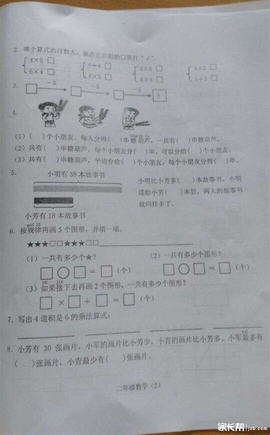 2. 哪个算式的得数大，就在它后面的□里打“√”。
3.
4.
(1) ( )个小朋友，每人分得( )串糖葫芦，一共有( )串糖葫芦。
(2) 共有( )串糖葫芦，每个小朋友分( )串，可以分给( )个小朋友。
(3) 共有( )串糖葫芦，平均分给( )个小朋友，每个小朋友分( )串。
5.
小明有38本故事书
小明比小芳多( )本故事书，小明
送给小芳( )本后，两人的故事书
就同样多了。
小芳有18本故事书
6. 按规律再画5个图形，并填一填。
★★★□□★★★□□
(1) 一共有多少个★？
(2) 一共有多少个图形？
□○□=□(个)
□○□=□(个)
(3) 如果接下去再画2个图形，一共有多少个图形？
□×□+□=□(个)
7. 写出4道积是6的乘法算式：
8. 小芳有30张画片，小军的画片比小芳少，小青的画片比小芳多，小军最多有
( )张画片，小青最少有( )张画片。
二年级数学 (2)
家长帮
jzb.com